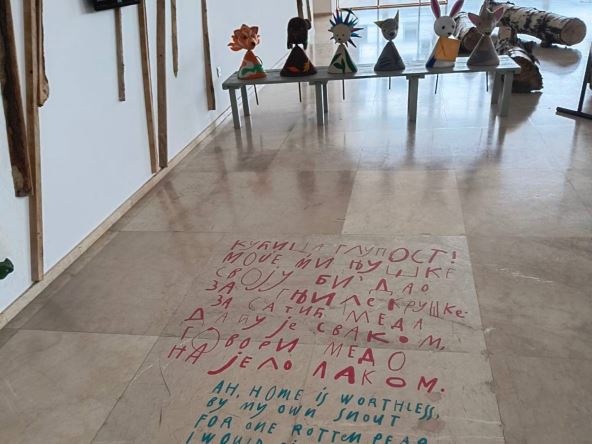 КУЋИЦА ГЛУПОСТ!
МОЈЕ МИ ЊУШКЕ
СВОЈУ БИ' ДАО
ЗА ГЊИЛЕ КРУШКЕ.
ЗА САТИЋ МЕДА
ДАЋУ ЈЕ СВАКОМ,
ГОВОРИ МЕДО
НА ЈЕЛО ЛАКОМ.
AH, HOME IS WORTHLESS,
BY MY OWN SNOUT
FOR ONE ROTTEN PEAR
I WOULD